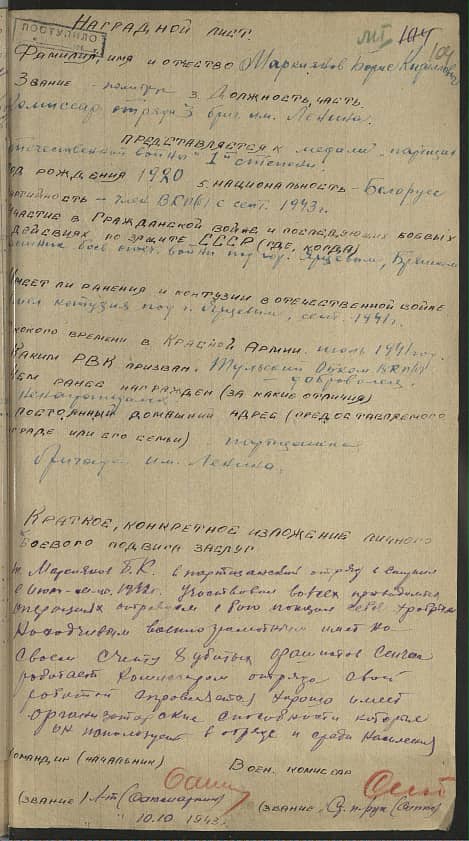 ПОСТУПИЛО
104
НАГРАДНОЙ ЛИСТ.
ФАМИЛИЯ ИМЯ И ОТЧЕСТВО Марсияков Борис Кириллович
ЗВАНИЕ - политрук 3. ДОЛЖНОСТЬ, ЧАСТЬ.
Комиссар отряда 3 бриг. им. Ленина.
ПРЕДСТАВЛЯЕТСЯ К медали „партизан
отечественной войны" 1й степени.
ОД РОЖДЕНИЯ 1920 5. НАЦИОНАЛЬНОСТЬ - Белорус
АРТИЙНОСТЬ - член ВКП(б) с сент. 1943 г.
УЧАСТИЕ В ГРАЖДАНСКОЙ ВОЙНЕ И ПОСЛЕДУЮЩИХ БОЕВЫХ
ДЕЙСТВИЯХ ПО ЗАЩИТЕ СССР (ГДЕ, КОГДА)
боев отеч. войны под гор. Ярцевым,
ИМЕЕТ ЛИ РАНЕНИЯ И КОНТУЗИИ В ОТЕЧЕСТВЕННОЙ ВОЙНЕ
контузия под г. Ярцевым, сент. 1941 г.
КАКОГО ВРЕМЕНИ В КРАСНОЙ АРМИИ. июль 1941 год.
КАКИМ РВК ПРИЗВАН. Тульским ВКП(б)
- доброволец.
ЧЕМ РАНЕЕ НАГРАЖДЕН (ЗА КАКИЕ ОТЛИЧИЯ)
Ненагражден
ПОСТОЯННЫЙ ДОМАШНИЙ АДРЕС (ПРЕДСТАВЛЯЕМОГО
ГРАДЕ ИЛИ ЕГО СЕМЬИ) партизанская
бригада им. Ленина.
КРАТКОЕ, КОНКРЕТНОЕ ИЗЛОЖЕНИЕ ЛИЧНОГО
БОЕВОГО ПОДВИГА ЗАСЛУГ
т. Марсияков Б.К. в партизанский отряд вступил
в 1942 г. Участвовал во всех проводимых
операциях отрядом в бою показал себя храбрым
Находчивым военнограмотным имеет на
своем счету 8 убитых фашистов Сейчас
работает Комиссаром отряда своей
работой справляется хорошо имеет
организаторские способности которые
он использует в отряде и среди Населения
КОМАНДИР (НАЧАЛЬНИК) ВОЕН. КОМИССАР
(ЗВАНИЕ) (ЗВАНИЕ,
10.10 1943 г.